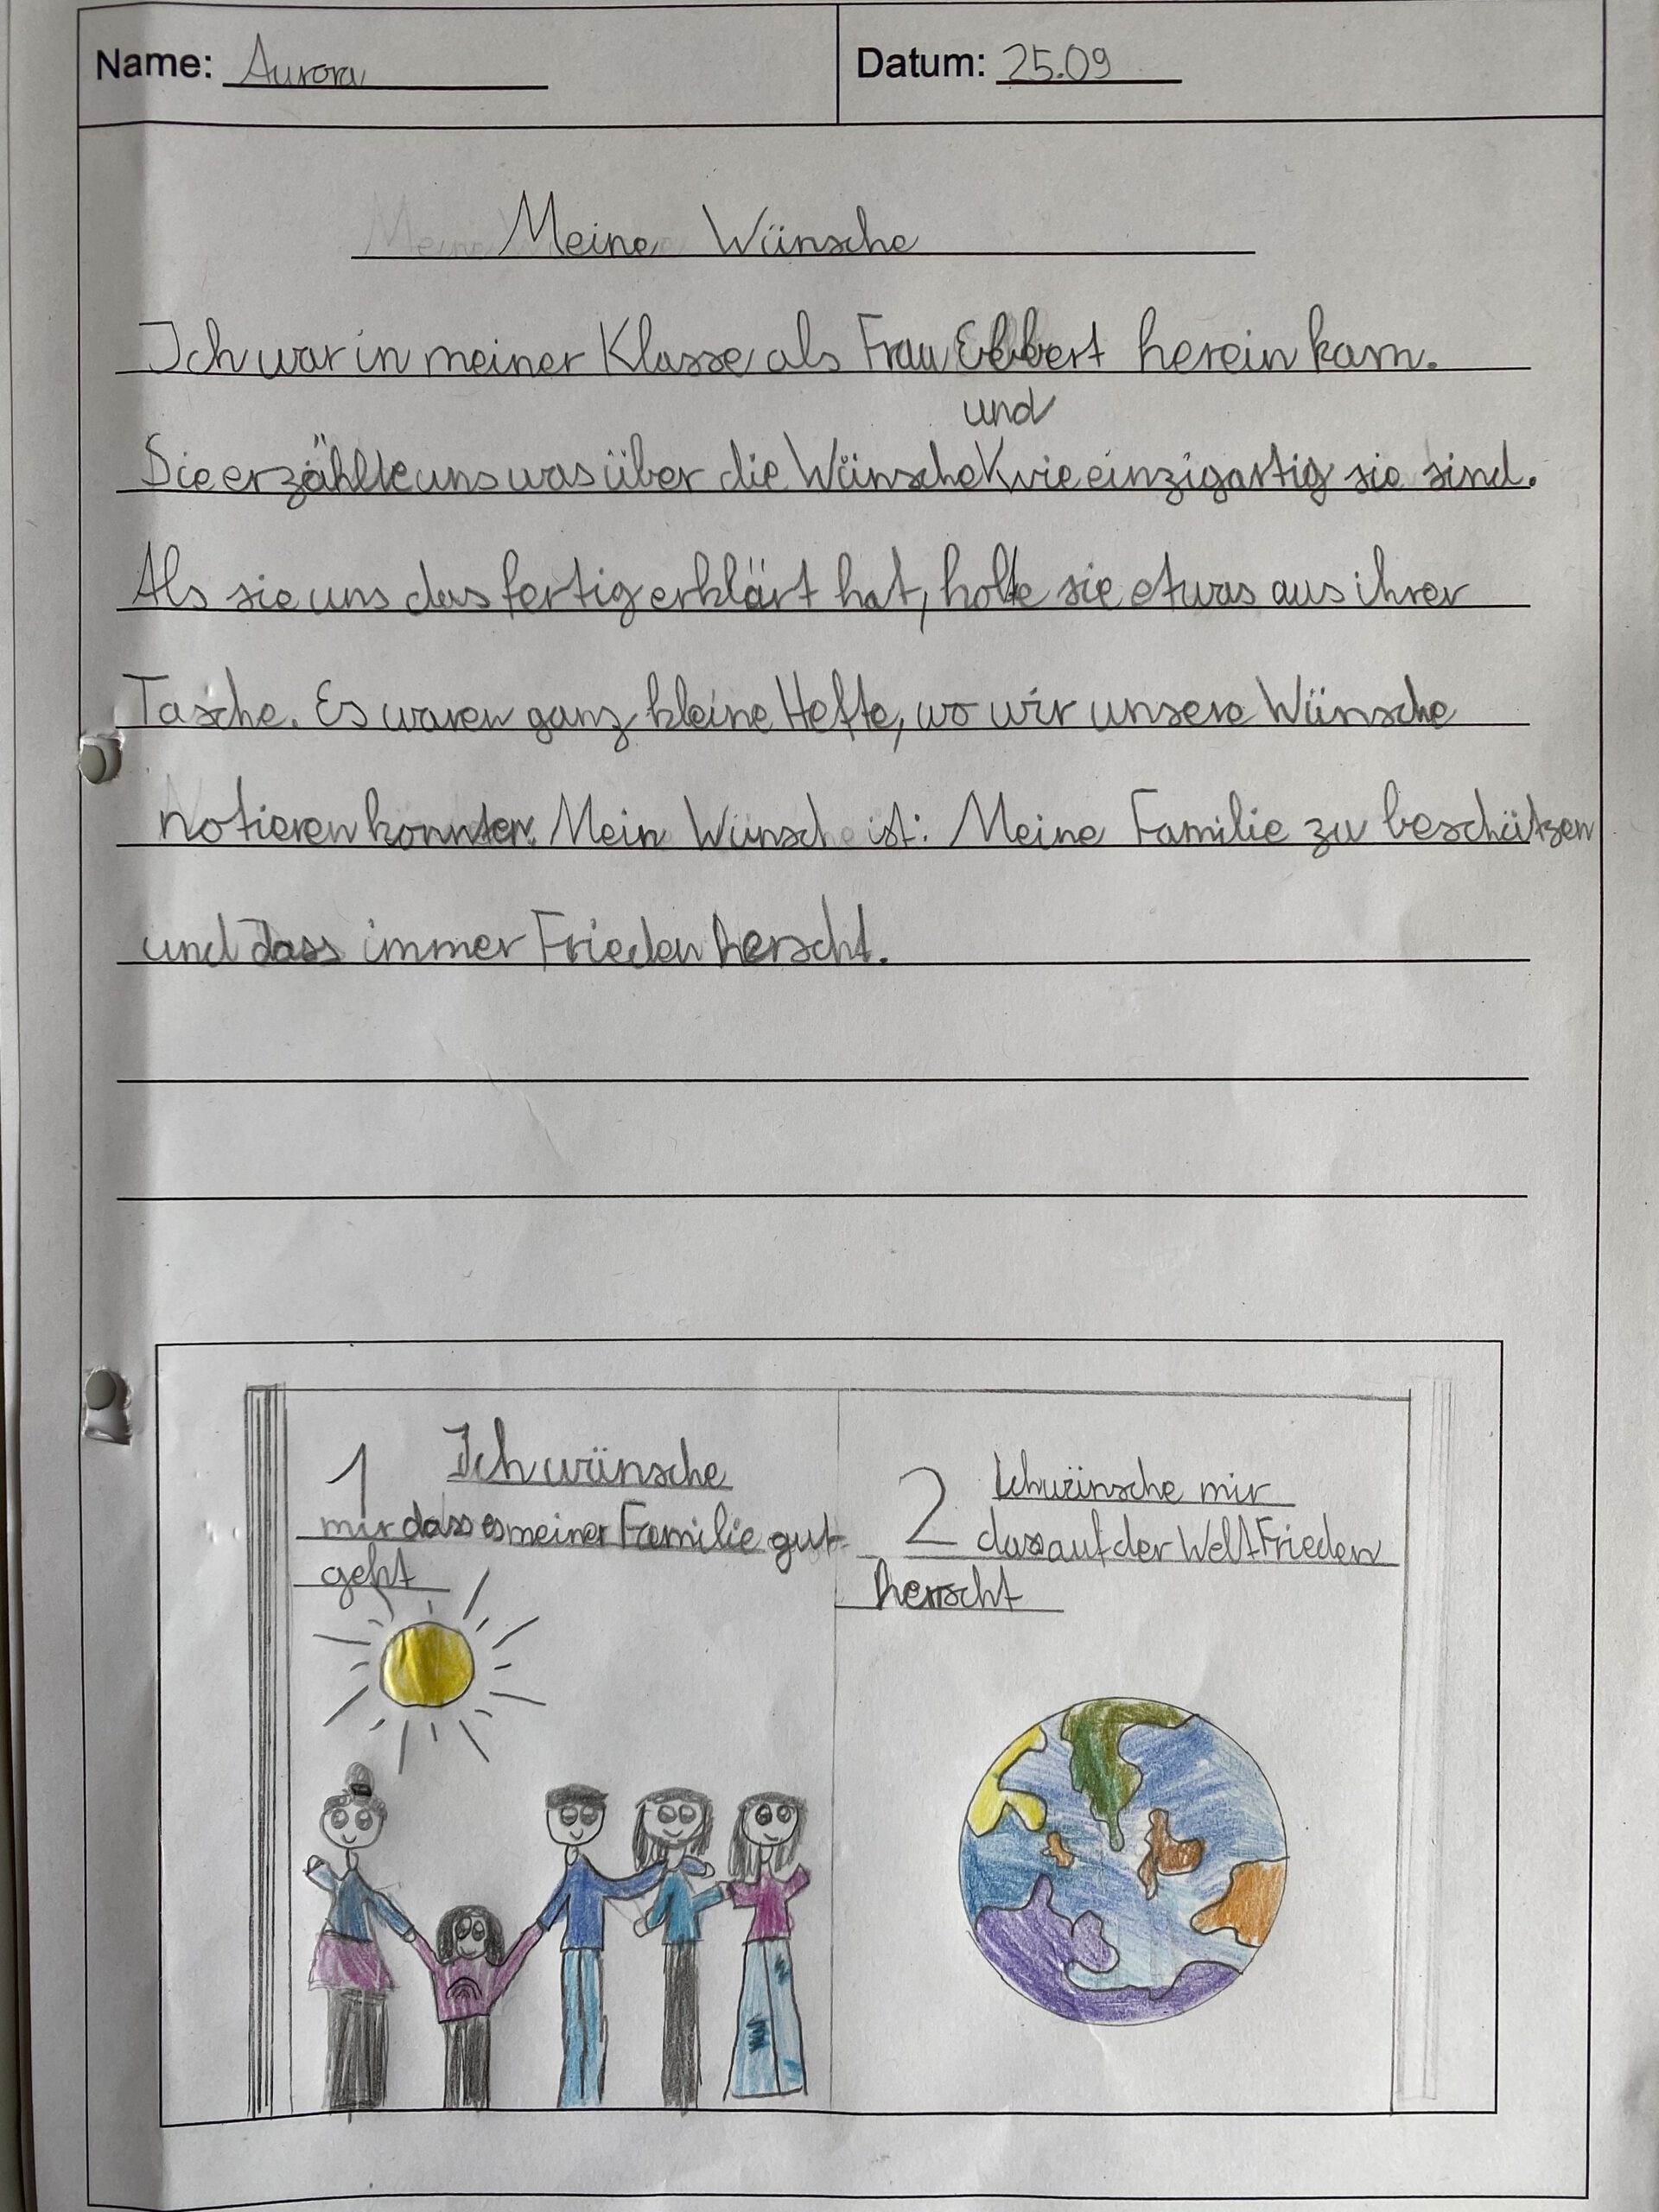 Name: Aurora
Datum: 25.09
Meine Wünsche
Ich war in meiner Klasse als Frau Ebbert herein kam.
und
Sie erzählte uns was über die Wünsche wie einzigartig sie sind.
Als sie uns das fertig erklärt hat, holte sie etwas aus ihrer
Tasche. Es waren ganz kleine Hefte, wo wir unsere Wünsche
notieren konnten. Mein Wunsch ist: Meine Familie zu beschützen
und dass immer Frieden herscht.
1 Ich wünsche
mir dass es meiner Familie gut
geht
2 Ich wünsche mir
das auf der Welt Frieden
herrscht